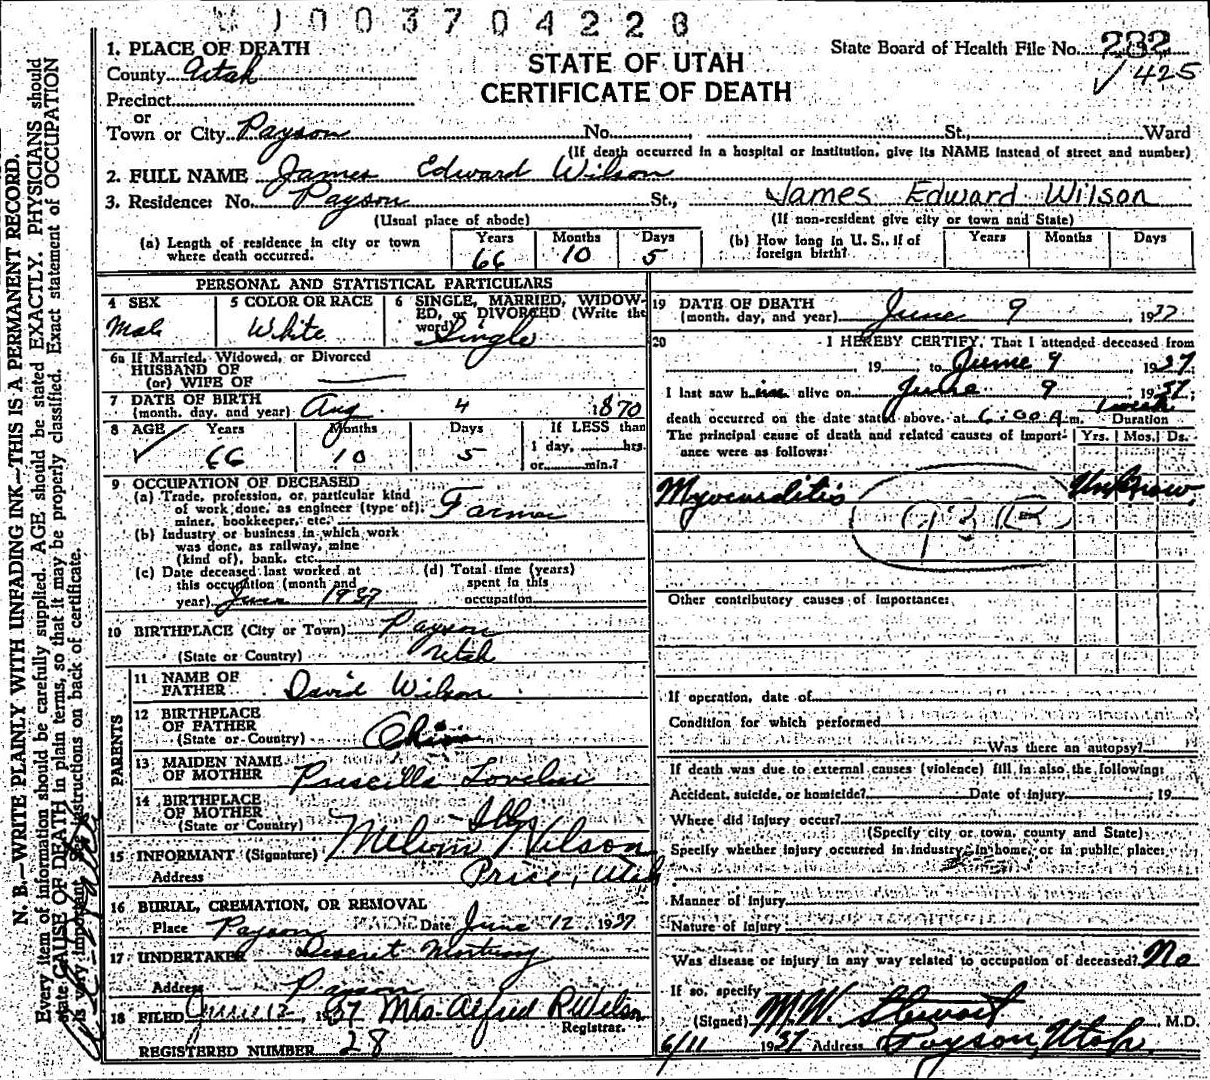 1003704228
1. PLACE OF DEATH
County Utah
Precinct
or
Town or City Payson No. St., Ward
STATE OF UTAH
CERTIFICATE OF DEATH
State Board of Health File No. 232
✓ 425
(If death occurred in a hospital or institution, give its NAME instead of street and number)
2. FULL NAME James Edward Wilson
3. Residence: No. Payson St., James Edward Wilson
(Usual place of abode) (If non-resident give city or town and State)
(a) Length of residence in city or town where death occurred. Years 66 Months 10 Days 5
(b) How long in U. S., if of foreign birth? Years Months Days
PERSONAL AND STATISTICAL PARTICULARS
4 SEX Male
5 COLOR OR RACE White
6 SINGLE, MARRIED, WIDOWED, or DIVORCED (Write the word) Single
6a If Married, Widowed, or Divorced
HUSBAND OF
(or) WIFE OF
7 DATE OF BIRTH
(month, day, and year) Aug. 4 1870
8 AGE Years 66 Months 10 Days 5 If LESS than
1 day, hrs.
or min.?
9 OCCUPATION OF DECEASED
(a) Trade, profession, or particular kind
of work done, as engineer (type of),
miner, bookkeeper, etc. Farmer
(b) Industry or business in which work
was done, as railway, mine
(kind of), bank, etc.
(c) Date deceased last worked at
this occupation (month and
year) June 1937
(d) Total time (years)
spent in this
occupation
10 BIRTHPLACE (City or Town) Payson
(State or Country) Utah
PARENTS
11 NAME OF
FATHER David Wilson
12 BIRTHPLACE
OF FATHER
(State or Country) Ohio
13 MAIDEN NAME
OF MOTHER Priscilla Loveless
14 BIRTHPLACE
OF MOTHER
(State or Country) Ills
15 INFORMANT (Signature) Melvin Wilson
Address Price, Utah
16 BURIAL, CREMATION, OR REMOVAL
Place Payson Date June 12 1937
17 UNDERTAKER Deseret Mortuary
Address Payson
18 FILED June 12, 1937 Mrs. Alfred R Wilson
Registrar.
REGISTERED NUMBER 28
19 DATE OF DEATH
(month, day, and year) June 9 1937
20 I HEREBY CERTIFY, That I attended deceased from
, 19 to June 9 1937
I last saw him alive on June 9 1937;
death occurred on the date stated above, at 6:00 A m. 1 week Duration
The principal cause of death and related causes of importance were as follows: Yrs. Mos. Ds.
Myocarditis Unknown
93 B
Other contributory causes of importance:
If operation, date of
Condition for which performed
Was there an autopsy?
If death was due to external causes (violence) fill in also the following:
Accident, suicide, or homicide? Date of injury , 19
Where did injury occur?
(Specify city or town, county and State)
Specify whether injury occurred in industry, in home, or in public place:
Manner of injury
Nature of injury
Was disease or injury in any way related to occupation of deceased? No
If so, specify
(Signed) M.W. Stewart, M.D.
6/11 1937 Address Payson, Utah.
N. B.—WRITE PLAINLY WITH UNFADING INK—THIS IS A PERMANENT RECORD.
Every item of information should be carefully supplied. AGE should be stated EXACTLY. PHYSICIANS should
state CAUSE OF DEATH in plain terms, so that it may be properly classified. Exact statement of OCCUPATION
is very important. See instructions on back of certificate.